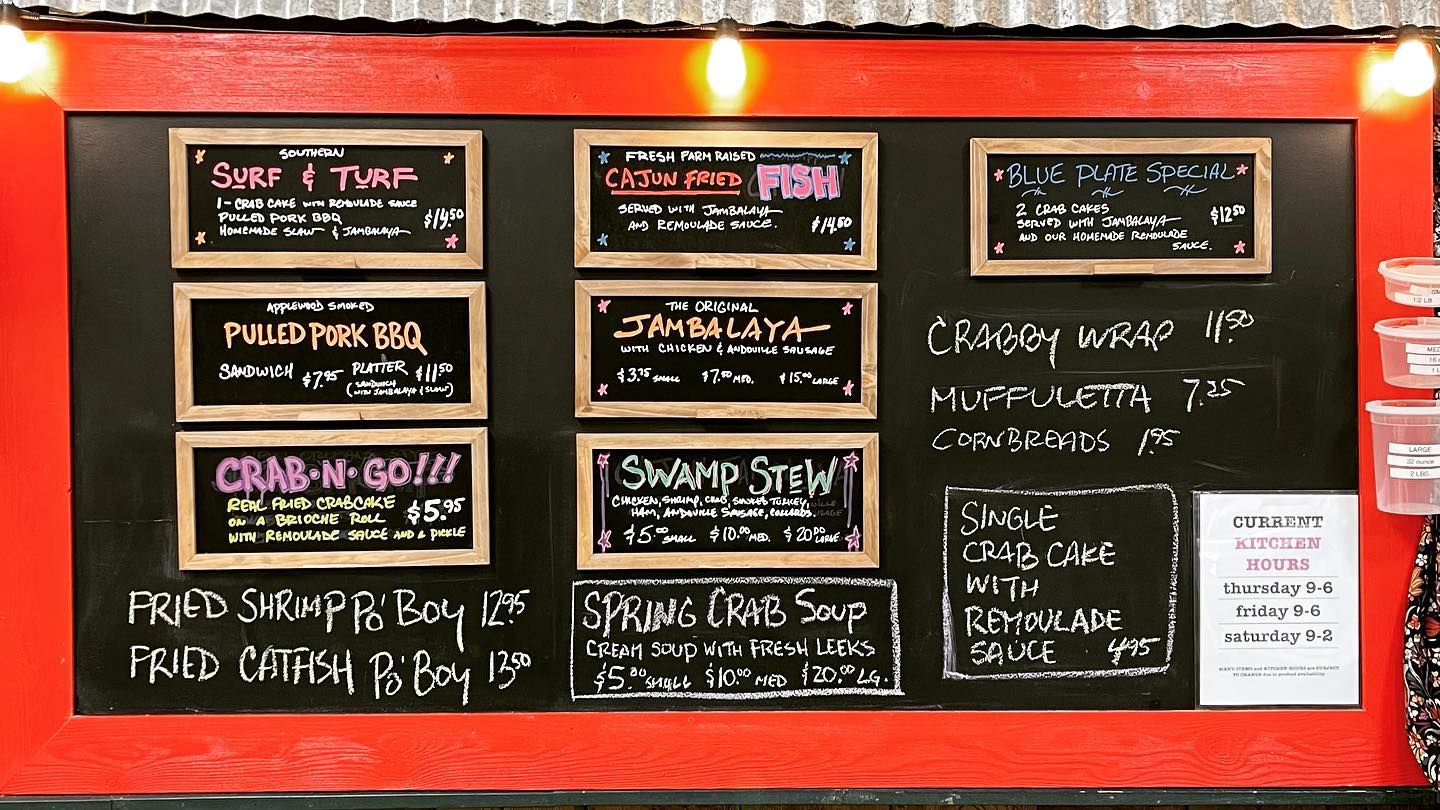 SOUTHERN
SURF & TURF
1 - CRAB CAKE WITH REMOULADE SAUCE
PULLED PORK BBQ
HOMEMADE SLAW & JAMBALAYA
$14.50
APPLEWOOD SMOKED
PULLED PORK BBQ
SANDWICH $7.95 PLATTER $11.50
(SANDWICH
WITH JAMBALAYA & SLAW)
CRAB·N·GO!!!
REAL FRIED CRABCAKE
ON A BRIOCHE ROLL
WITH REMOULADE SAUCE AND A PICKLE
$5.95
FRIED SHRIMP Po' Boy 12.95
FRIED CATFISH Po' Boy 13.50
FRESH FARM RAISED
CAJUN FRIED FISH
SERVED WITH JAMBALAYA
AND REMOULADE SAUCE.
$14.50
THE ORIGINAL
JAMBALAYA
WITH CHICKEN & ANDOUILLE SAUSAGE
$3.75 SMALL $7.50 MED. $15.00 LARGE
SWAMP STEW
CHICKEN, SHRIMP, CRAB, SMOKED TURKEY,
HAM, ANDOUILLE SAUSAGE, COLLARDS.
$5.00 SMALL $10.00 MED. $20.00 LARGE
SPRING CRAB SOUP
CREAM SOUP WITH FRESH LEEKS
$5.00 SMALL $10.00 MED $20.00 LG.
BLUE PLATE SPECIAL
2 CRAB CAKES
SERVED WITH JAMBALAYA
AND OUR HOMEMADE REMOULADE
SAUCE.
$12.50
CRABBY WRAP 11.50
MUFFULETTA 7.25
CORNBREADS 1.95
SINGLE
CRAB CAKE
WITH
REMOULADE
SAUCE 4.95
CURRENT
KITCHEN
HOURS
thursday 9-6
friday 9-6
saturday 9-2
MENU ITEMS and KITCHEN HOURS are SUBJECT
TO CHANGE due to product availability
1/2 LB
LARGE
32 ounce
2 LBS.